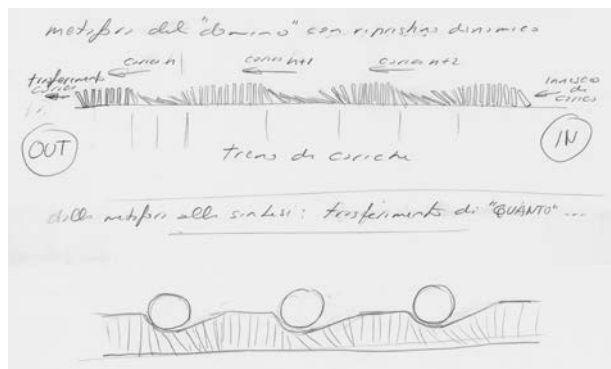 metafora del "domino" con ripristino dinamico
carica n carica n+1 carica n+2
trasferimento carica
innesco di carica
OUT IN
treno di cariche
dalla metafora alla sintesi: trasferimento di "QUANTO"...